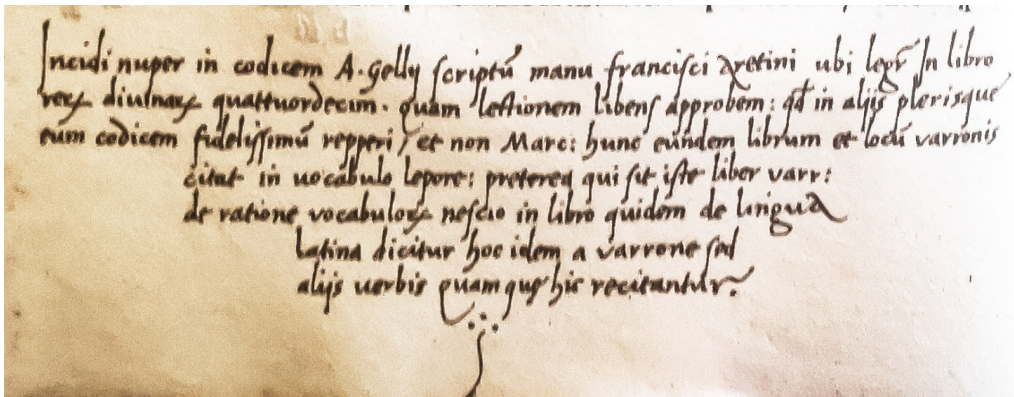 Incidi nuper in codicem A. Gellij scriptū manu francisci Aretini ubi legr̄ In libro
reꝝ diuinaꝝ quattuordecim. quam lectionem libens approbem: qd̄ in alijs plerisque
eum codicem fidelissimū repperi / et non Marc: hunc eundem librum et locū varronis
citat in uocabulo lepore: preterea qui sit iste liber varr:
de ratione vocabuloꝝ nescio in libro quidem de lingua
latina dicitur hoc idem a varrone sed
alijs uerbis quam quę hic recitantur.